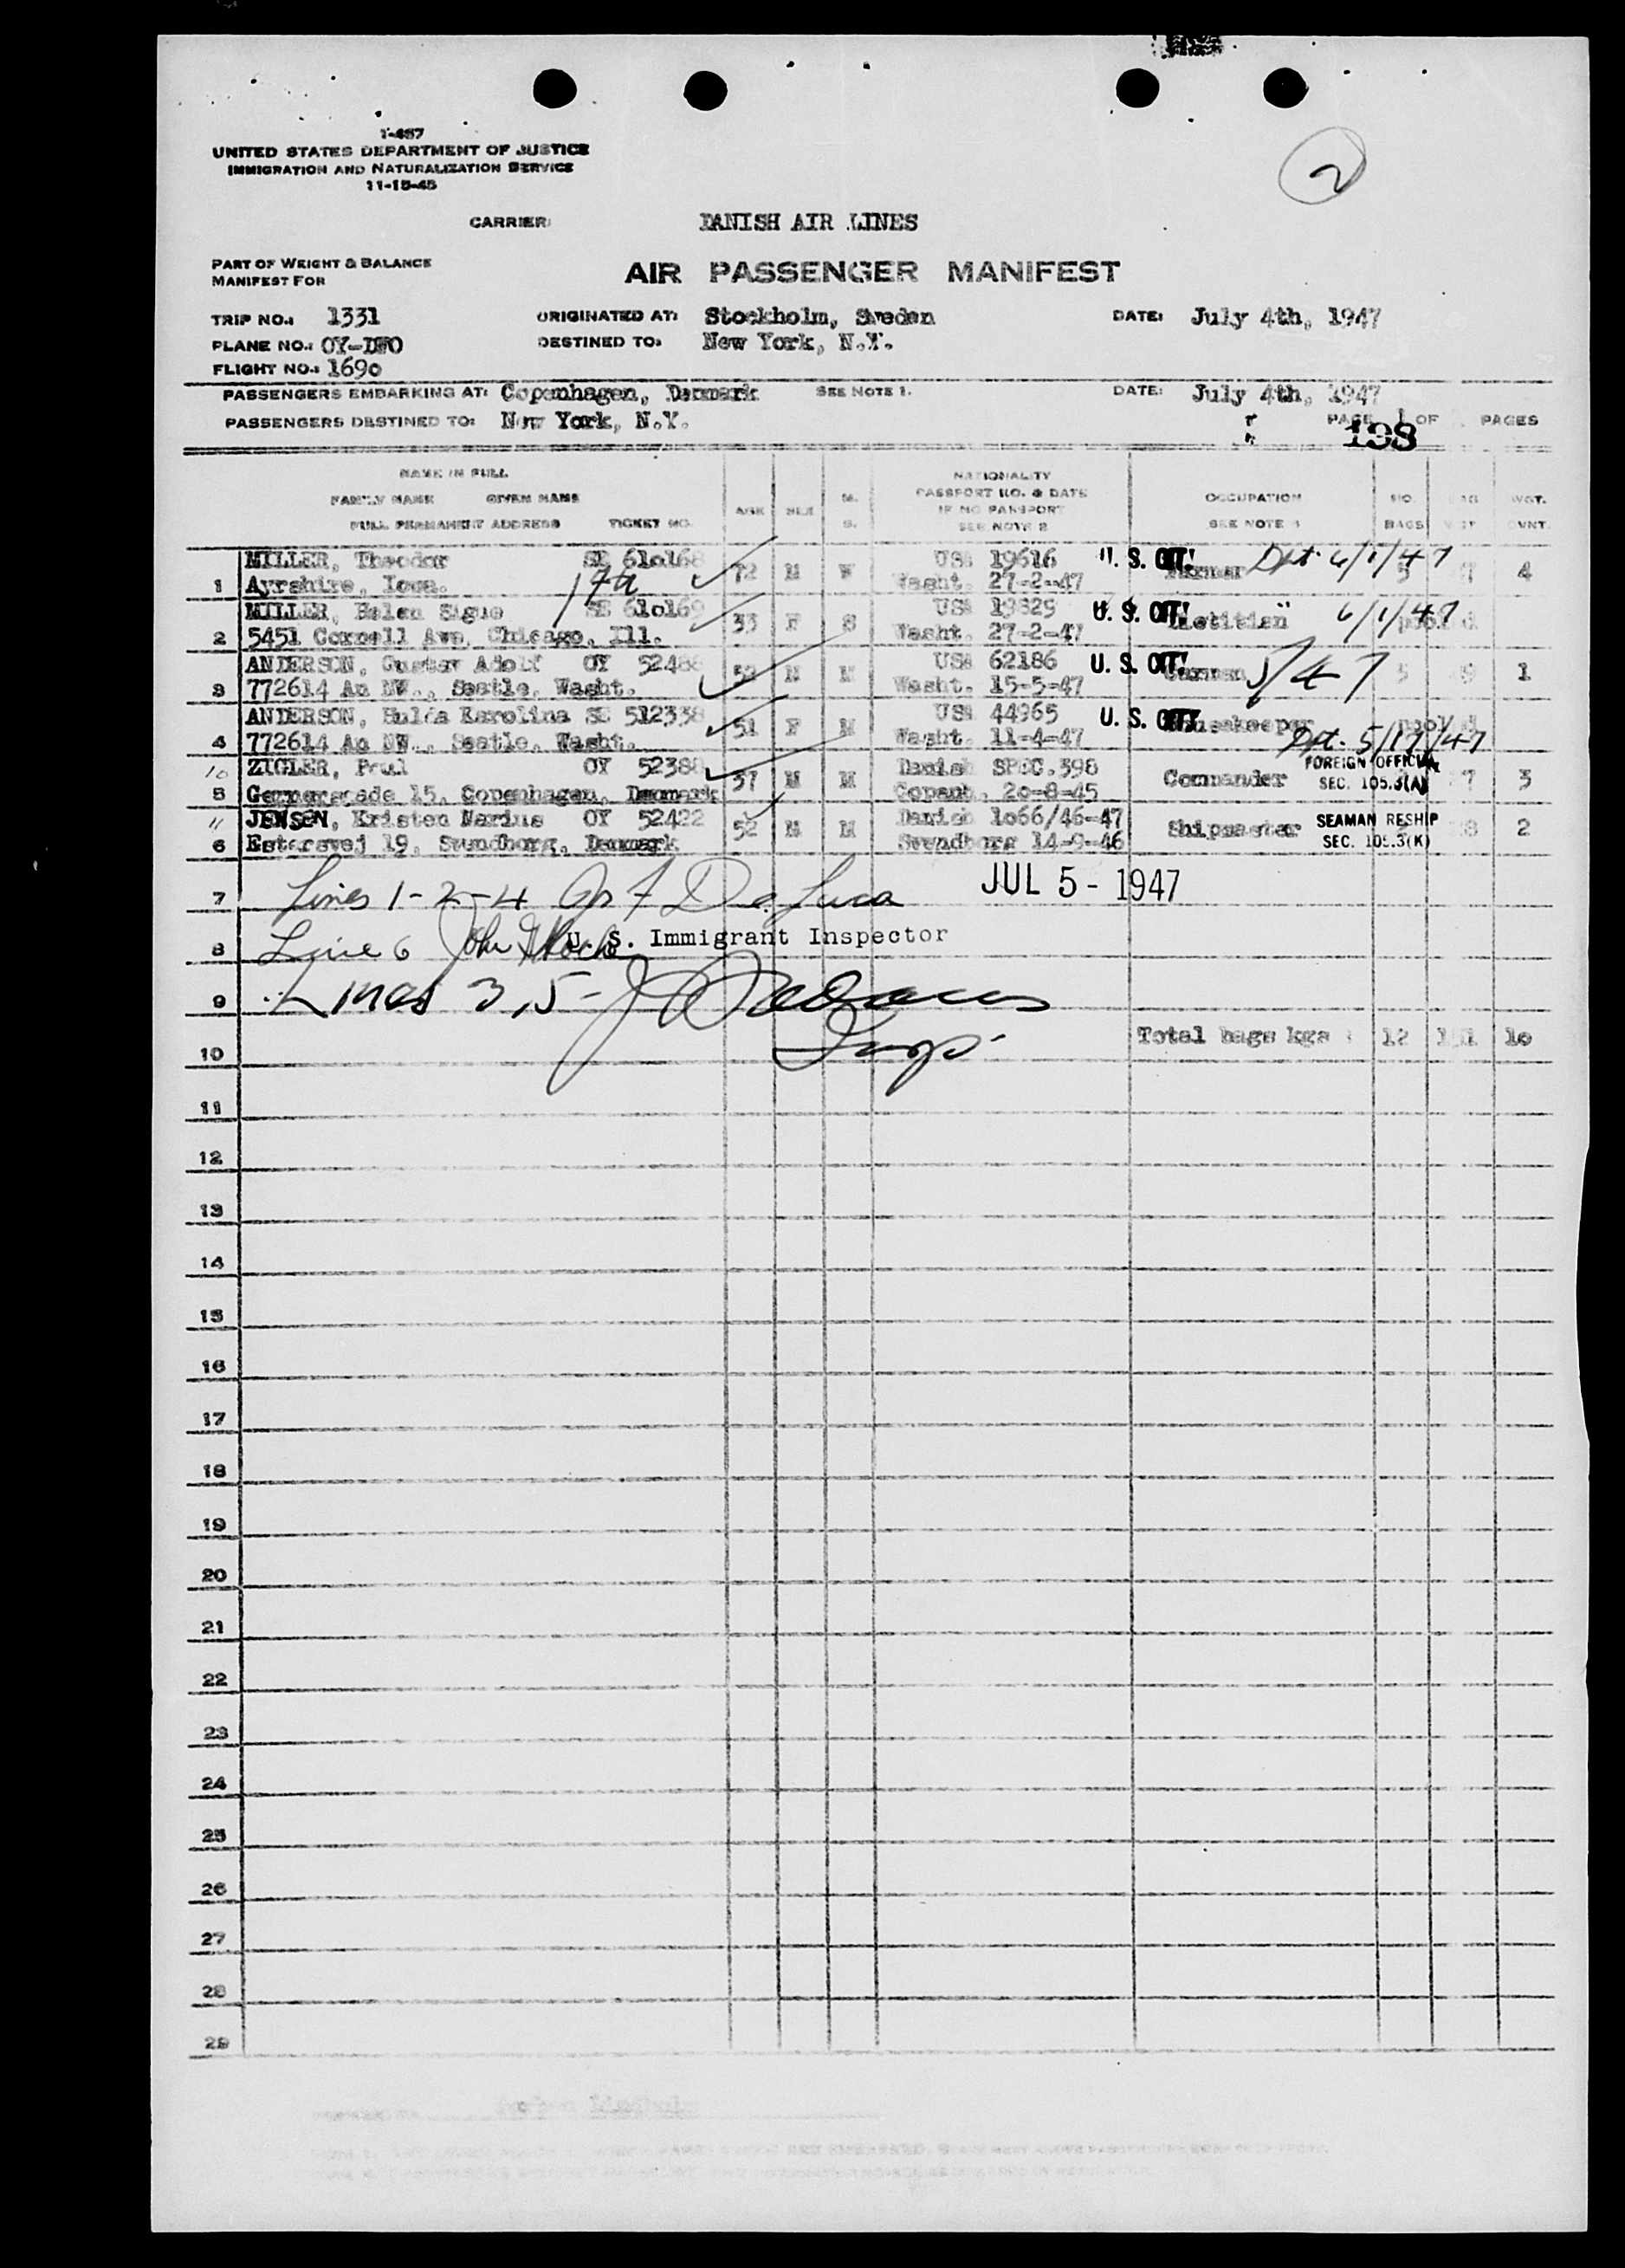 2
I-457
UNITED STATES DEPARTMENT OF JUSTICE
IMMIGRATION AND NATURALIZATION SERVICE
11-15-45
CARRIER: DANISH AIR LINES
PART OF WEIGHT & BALANCE
MANIFEST FOR
AIR PASSENGER MANIFEST
TRIP NO.: 1331 ORIGINATED AT: Stockholm, Sweden DATE: July 4th, 1947
PLANE NO.: OY-DFO DESTINED TO: New York, N.Y.
FLIGHT NO.: 1690
PASSENGERS EMBARKING AT: Copenhagen, Denmark SEE NOTE 1. DATE: July 4th, 1947
PASSENGERS DESTINED TO: New York, N.Y. PAGE 1 OF PAGES
198
NAME IN FULL NATIONALITY
FAMILY NAME GIVEN NAME M. PASSPORT NO. & DATE OCCUPATION NO. WGT.
AGE SEX IF NO PASSPORT
FULL PERMANENT ADDRESS TICKET NO. S. SEE NOTE 2 SEE NOTE BAGS
MILLER, Theodor SE 610168 USA 19616 U. S. CIT. 6/1/47
1 Ayrshire, Iowa. 72 M Washt. 27-2-47 Farmer 4
MILLER, Helen Signe SE 610169 USA 19829 U. S. CIT. 6/1/47
2 5451 Cornell Ave, Chicago, Ill. 33 F S Washt. 27-2-47 Dietitian
ANDERSON, Gustav Adolf OY 52488 USA 62186 U. S. CIT. 5/47
3 772614 Ao NW., Seatle, Washt. 52 M M Washt. 15-5-47 5 9 1
ANDERSON, Hulda Karolina SE 512338 USA 44965 U. S. CIT.
4 772614 Ao NW., Seatle, Washt. 51 F M Washt. 11-4-47 Housekeeper 5/17/47
10 ZIGLER, Poul OY 52388 Danish SPEC.398 FOREIGN OFFICIAL
5 15, Copenhagen, Denmark 37 M M Copenh. 20-8-45 Commander SEC. 105.3(A) 7 3
11 JENSEN, Kristen Marius OY 52422 Danish 1066/46-47 SEAMAN RESHIP
6 19, Svendborg, Denmark 52 M M Svendborg 14-9-46 Shipmaster SEC. 105.3(K) 8 2
7 Lines 1-2-4 De Luca JUL 5 - 1947
8 Line 6 John U. S. Immigrant Inspector
9 Lines 3, 5 -
Insp.
10 Total bags kgs : 12 10
11
12
13
14
15
16
17
18
19
20
21
22
23
24
25
26
27
28
29